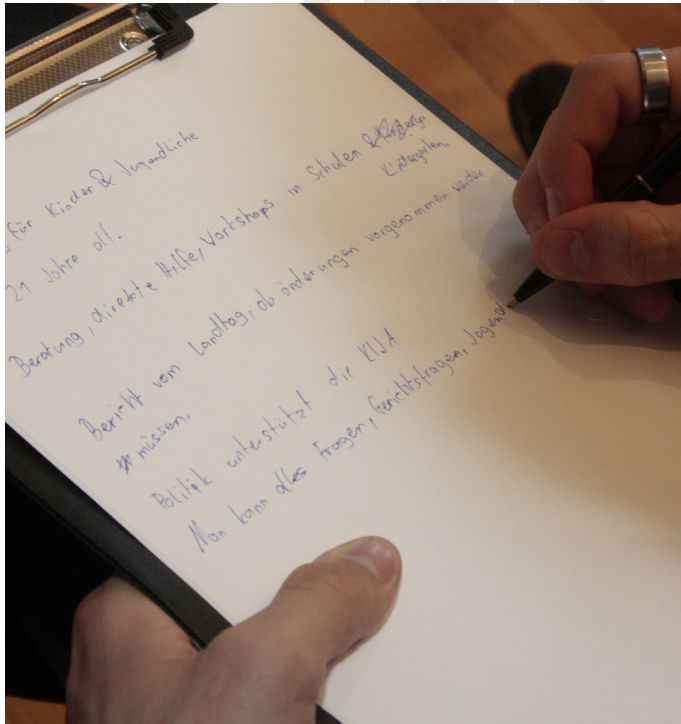 für Kinder & Jugendliche
21 Jahre alt.
Beratung, direkte Hilfe, Workshops in Schulen &
Kindergärten
Bericht vom Landtag, ob änderungen vorgenommen werden
müssen.
Politik unterstützt die KIJA
Man kann alles Fragen, Gerichtsfragen, Jugend